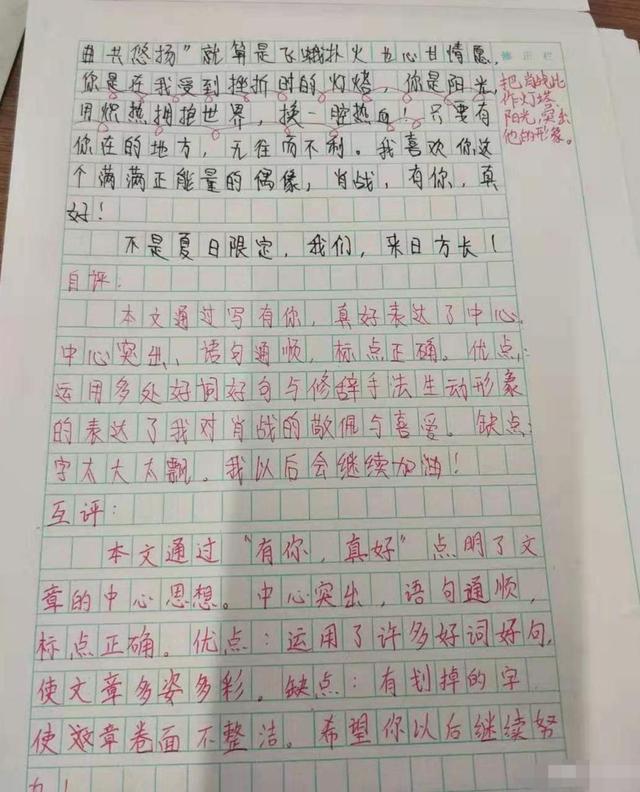 曲共悠扬”就算是飞蛾扑火也心甘情愿，
你是在我受到挫折时的灯塔，你是阳光，
用炽热拥抱世界，换一腔热血！只要有
你在的地方，无往而不利。我喜欢你这
个满满正能量的偶像，肖战，有你，真
好！
不是夏日限定，我们，来日方长！
修正栏
把肖战比
作灯塔、
阳光，突出
他的形象。
自评：
本文通过写有你，真好表达了中心，
中心突出、语句通顺，标点正确。优点：
运用多处好词好句与修辞手法生动形象
的表达了我对肖战的敬佩与喜爱。缺点：
字太大太飘。我以后会继续加油！
互评：
本文通过“有你，真好”点明了文
章的中心思想。中心突出，语句通顺，
标点正确。优点：运用了许多好词好句，
使文章多姿多彩。缺点：有划掉的字
使文章卷面不整洁。希望你以后继续努
力！